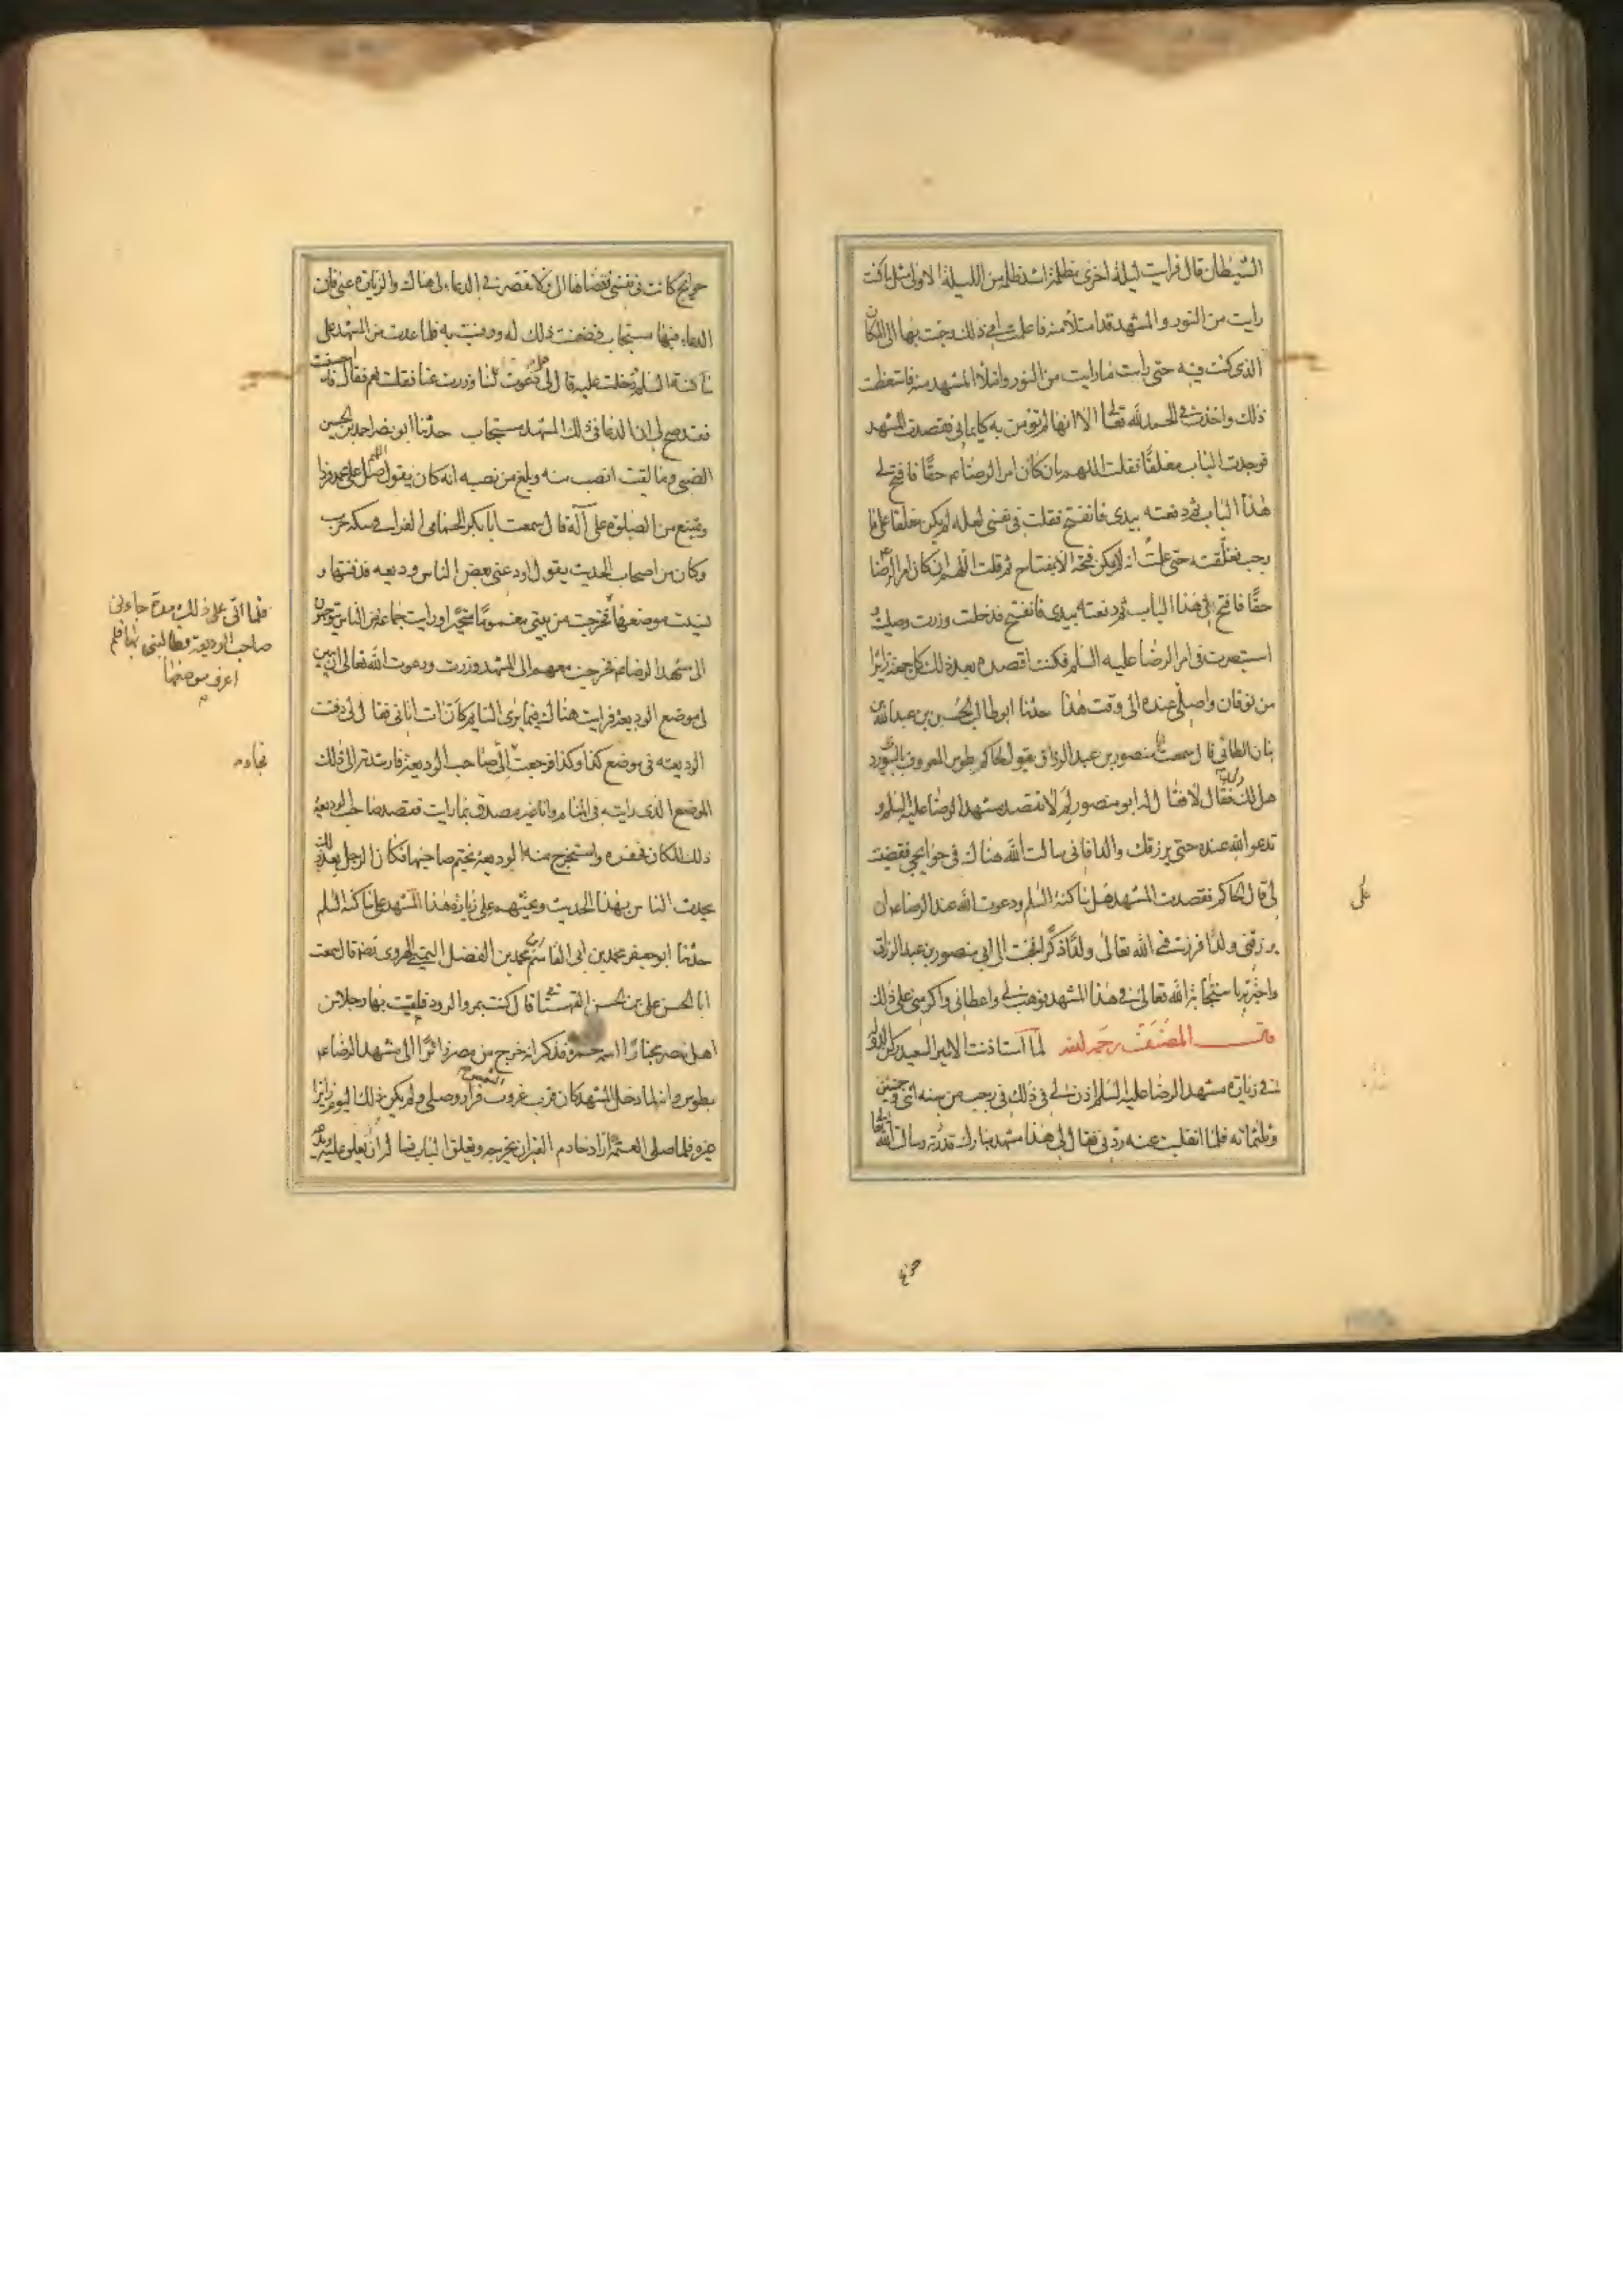 الشيطان قال فرايت ليلة اخرى مظلمة اشد ظلمة من الليلة الاولى مثل ما كنت
رايت من النور والمشهد قد امتلا منه فاعلمت امى ذلك وجئت بها الى المكان
الذى كنت فيه حتى رات ما رايت من النور وامتلا المشهد منه فاستعظمت
ذلك واخذت فى الحمد لله تعالى الا انها لم تؤمن به كايمانى فقصدت المشهد
فوجدت الباب مغلقا فقلت اللهم ان كان امر الرضا ع حقا فافتح لى
هذا الباب ثم دفعته بيدى فانفتح فقلت فى نفسى لعله لم يكن مغلقا على ما
يجب فغلقته حتى علمت انه لم يكن فتحه الا بمفتاح ثم قلت اللهم ان كان امر الرضا
حقا فافتح لى هذا الباب ثم دفعته بيدى فانفتح فدخلت وزرت وصليت و
استبصرت فى امر الرضا عليه السلم فكنت اقصده بعد ذلك كل جمعة زائرا
من نوقان واصلى عنده الى وقت هذا حدثنا ابو طالب الحسين بن عبدالله بن
بنان الطائى قال سمعت ابا منصور بن عبد الرزاق يقول للحاكم بطوس المعروف بالبيوردى
هل لك ولد فقال لا فقال له ابو منصور لم لا تقصد مشهد الرضا عليه السلم و
تدعو الله عنده حتى يرزقك ولدا فانى سالت الله هناك فى حوايجى فقضيت
لى قال الحاكم فقصدت المشهد على ساكنه السلم ودعوت الله عند الرضا ع ان
يرزقنى ولدا فرزقنى الله تعالى ولدا ذكرا فجئت الى ابى منصور بن عبد الرزاق
واخبرته باستجابة الله تعالى لى فى هذا المشهد فوهب لى واعطانى واكرمنى على ذلك
قال المصنف رحمه الله لما استاذنت الامير السعيد ركن الدولة
فى زيارة مشهد الرضا عليه السلم اذن لى فى ذلك فى رجب من سنه اثنى وخمسين
وثلثمائه فلما انقلبت عنه ردنى فقال لى هذا مشهد مبارك قد زرته وسالت الله تعالى
على
حوايج كانت فى نفسى فقضاها لى فلا تقصر فى الدعاء لى هناك والزيارة عنى فان
الدعاء فيها مستجاب فضمنت ذلك له ووفيت به فلما عدت من المشهد على
ساكنه السلم دخلت عليه قال لى هل دعوت لنا وزرت عنا فقلت نعم فقال قد احسنت
فقد صح لى ان الدعا فى ذلك المشهد مستجاب حدثنا ابو نصر احمد بن الحسين
الضبى وما لقيت انصب منه وبلغ من نصبه انه كان يقول اللهم صل على محمد فردا
ويمتنع من الصلوة على آله قال سمعت ابا بكر الحمامى الفرا فى سكة حرب
وكان من اصحاب الحديث يقول اودعنى بعض الناس وديعه فدفنتها و
نسيت موضعها فخرجت من بيتى مغموما متحيرا ورايت جماعة من الناس يتوجهون
الى مشهد الرضا ع فخرجت معهم الى المشهد وزرت ودعوت الله تعالى ان يبين
لى موضع الوديعة فرايت هناك فيما يرى النائم كان ات اتانى فقال لى دفنت
الوديعه فى موضع كذا وكذا فرجعت الى صاحب الوديعة فارشدته الى ذلك
الموضع الذى رايته فى المنام وانا غير مصدق بما رايت فقصد صاحب الوديعة
ذلك المكان فحفره واستخرج منه الوديعة بختم صاحبها فكان الرجل بعد ذلك
يحدث الناس بهذا الحديث ويحثهم على زيارة هذا المشهد على ساكنه السلم
حدثنا ابو جعفر محمد بن ابى القاسم بن محمد بن الفضل التميمى الهروى رضه قال سمعت
ابا الحسن على بن الحسن القهستانى قال كنت بمرو الرود فلقيت بها رجلا من
اهل مصر مجتازا اسمه حمزة فذكر انه خرج من مصر زائرا الى مشهد الرضا ع
بطوس وانه لما دخل المشهد كان قرب غروب الشمس فزار وصلى ولم يكن ذلك اليوم زائرا
غيره فلما صلى العتمة اراد خادم القبر ان يخرجه ويغلق الباب فساله ان يغلق عليه
فلما اتى على ذلك مدة جاءنى
صاحب الوديعة فطالبنى بها فلم
اعرف موضعها